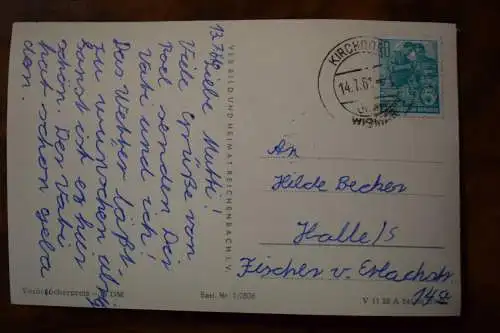 13.7.61 Liebe Mutti!
Viele Grüße von
Poel senden Dir
Vati und ich!
Das Wetter läßt
zu wünschen übrig
sonst ist es hier
schön. Der Vati
hat schon geba
den.
VEB BILD UND HEIMAT REICHENBACH I. V.
KIRCHDORF
14.7.61
WISMAR
An
Hilde Becker
Halle/S
Fischer v. Erlachstr.
149
Best. Nr. 1/2606
V 11 28 A